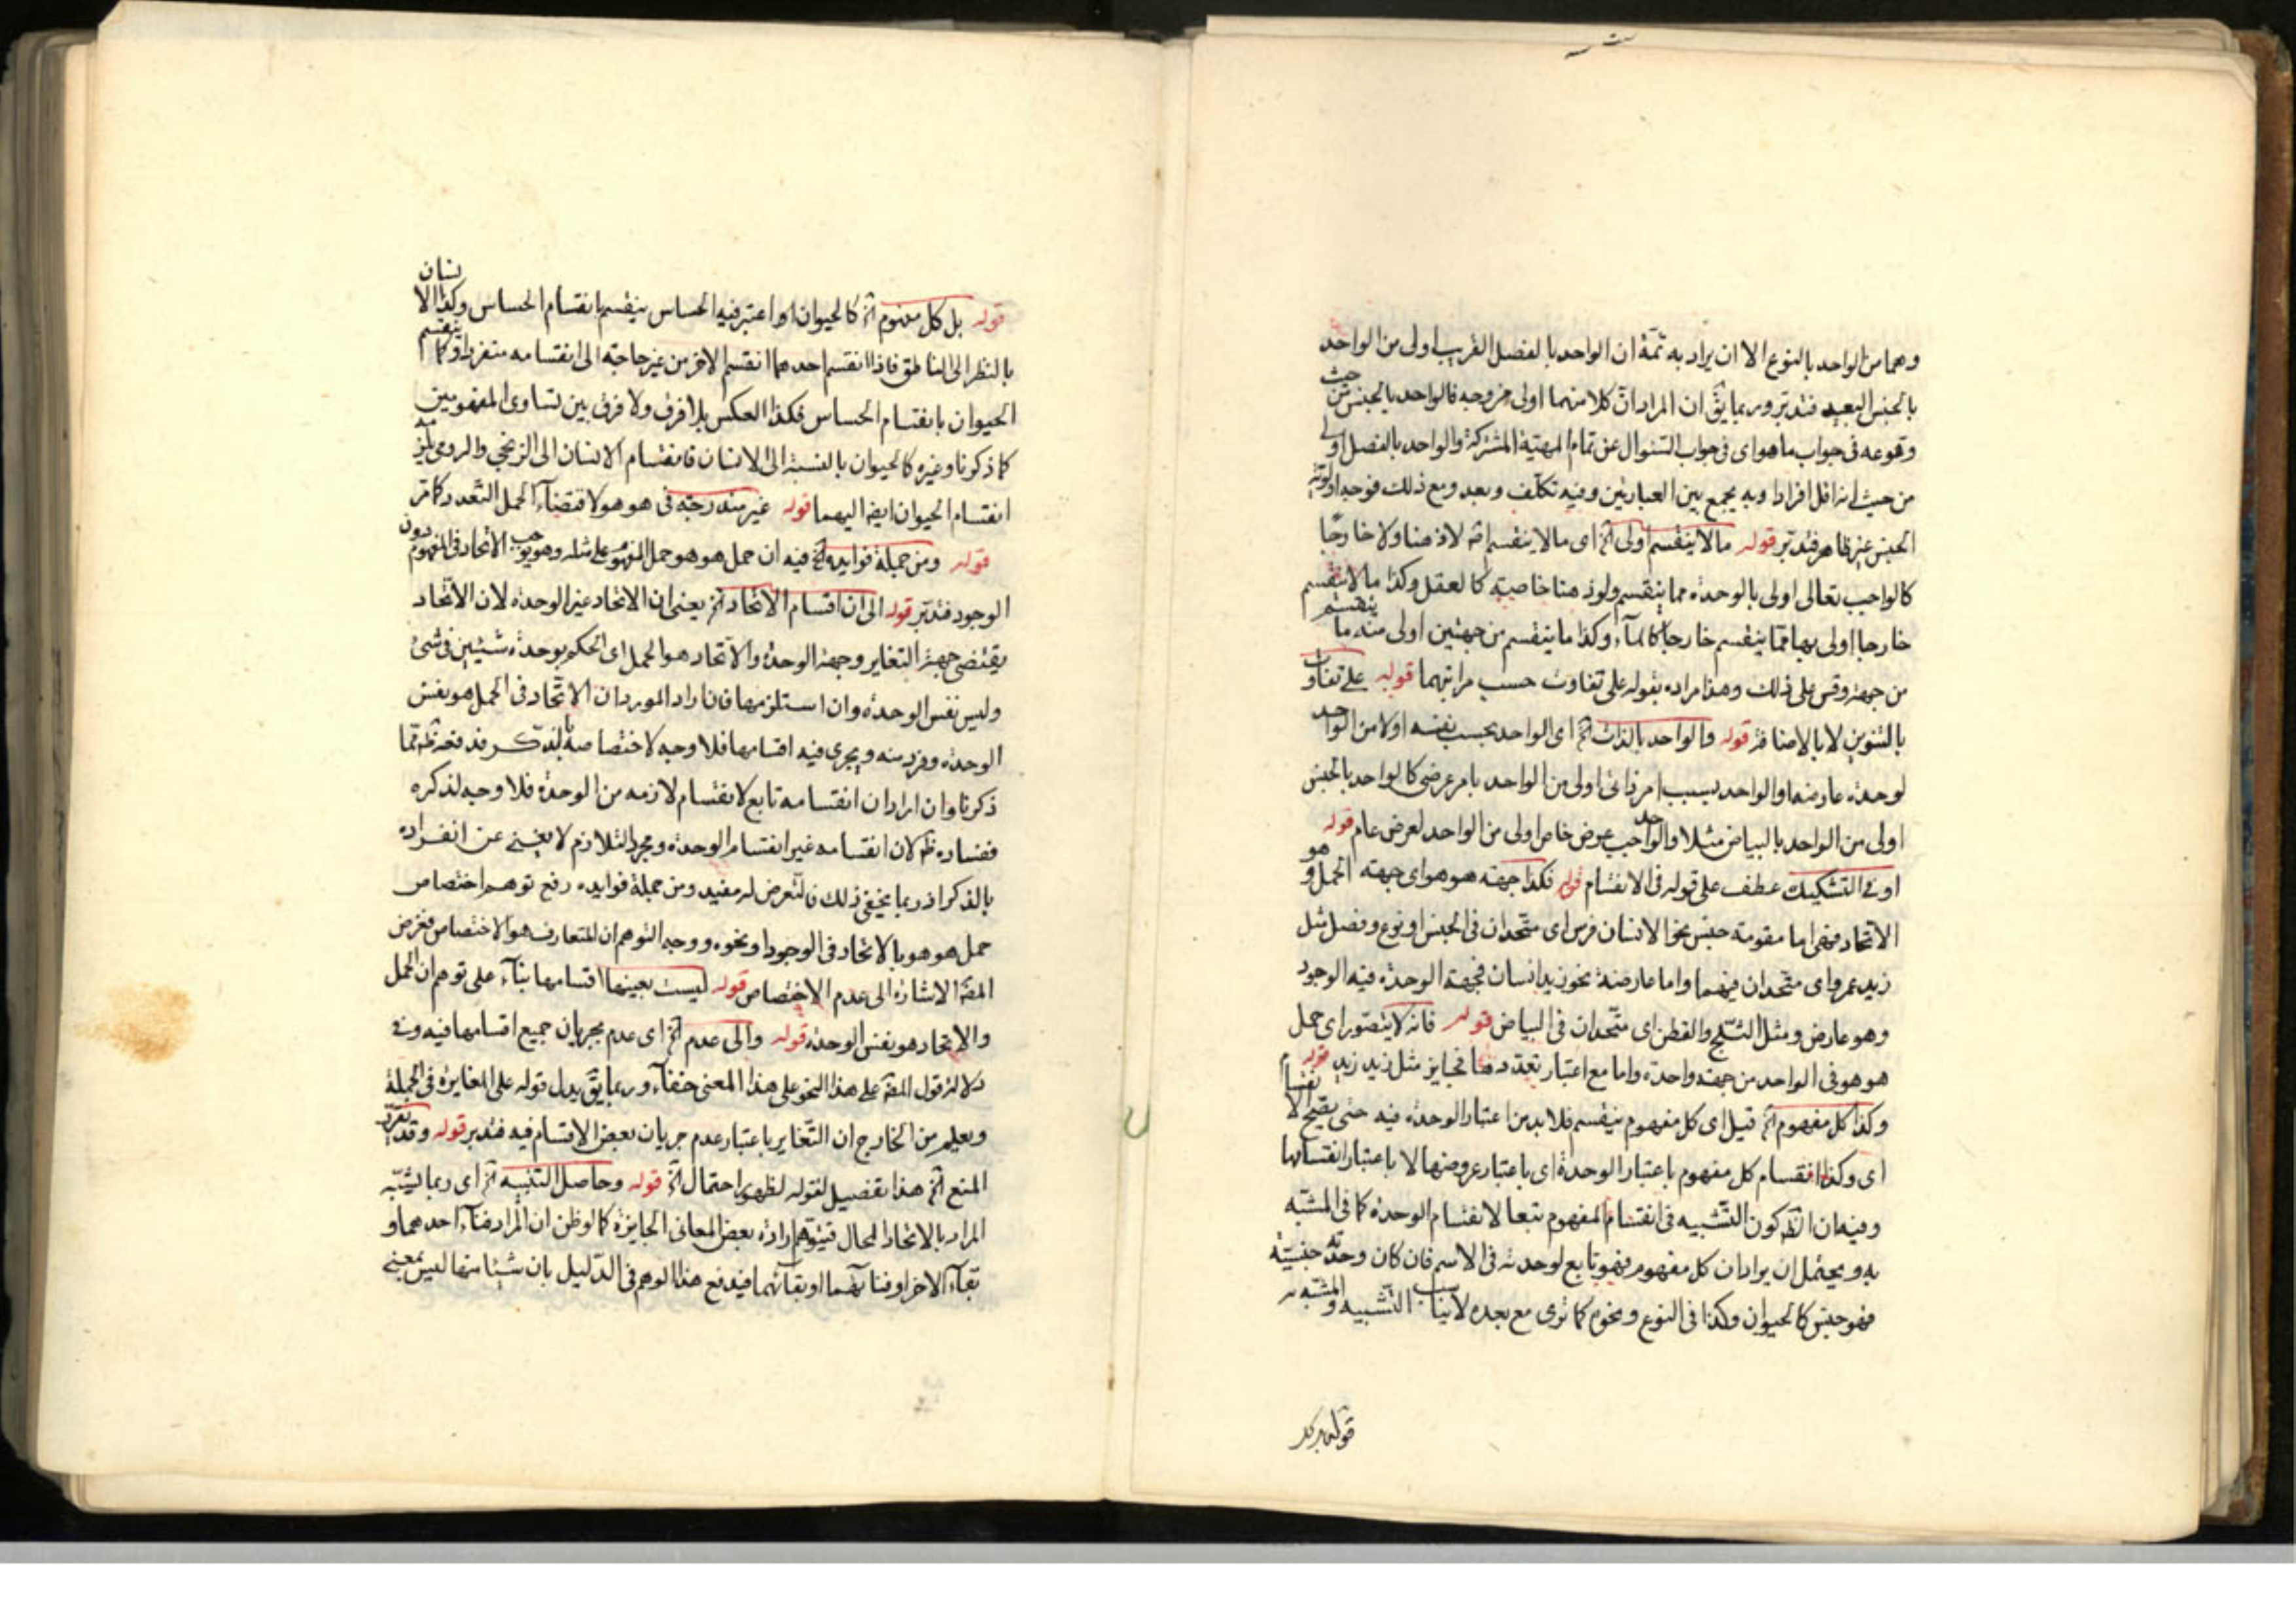 وهما من الواحد بالنوع الا ان يراد به ثمة ان الواحد بالفصل القريب اولى من الواحد
بالجنس البعيد فتدبر وربما يقّ ان المراد انّ كلا منهما اولى من وجه فالواحد بالجنس من حيث
وقوعه فى جواب ما هو اى فى جواب السّئوال عن تمام المهيّة المشتركة والواحد بالفصل اولى
من حيث انه اقل افرادا وبه يجمع بين العبارتين وفيه تكلّف وبعد ومع ذلك فوجه اولويّة
الجنس غير ظاهر فتدبر قوله ما لا ينقسم اولى الخ اى ما لا ينقسم اصّه لا ذهنا ولا خارجًا
كالواجب تعالى اولى بالوحدة مما ينقسم ولو ذهنا خاصة كالعقل وكذا ما لا ينقسم
خارجا اولى بها ممّا ينقسم خارجا كالمآء وكذا ما ينقسم من جهتين اولى منه ما ينقسم
من جهة وقس على ذلك وهذا مراده بقوله على تفاوت حسب مراتبهما قوله على تفاوت
بالتنوين لا بالاضافة قوله والواحد بالذات الخ اى الواحد بحسب نفسه اولا من الواحد
لوحدة عارضة والواحد بسبب امر ذاتى اولى من الواحد بامر عرضى كالواحد بالجنس
اولى من الواحد بالبياض مثلا والواحد عرض خاص اولى من الواحد لعرض عام قوله
او فى التشكيك عطف على قوله فى الانقسام قوله فكذا جهة هو هو اى جهة الحمل و هو
الاتحاد فهى اما مقومة جنس نحو الانسان فرس اى متّحدان فى الجنس او نوع وفصل مثل
زيد عمرو اى متّحدان فيهما واما عارضة نحو زيد انسان فجهة الوحدة فيه الوجود
وهو عارض ومثل الثلج والقطن اى متّحدان فى البياض قوله فانه لا يتصّور اى حمل
هو هو فى الواحد من جهة واحدة واما مع اعتبار تعدد ما فجايز مثل زيد زيد قوله
وكذا كل مفهوم الخ قيل اى كل مفهوم ينقسم فلا بد من اعتبار الوحدة فيه حتى يصح الانقسام
اى وكذا انقسام كل مفهوم باعتبار الوحدة اى باعتبار عروضها لا باعتبار انقسامها
وفيه ان الظّ كون التّشبيه فى انقسام المفهوم تبعا لانقسام الوحدة كما فى المشبّه
به ويحتمل ان يراد ان كل مفهوم فهو تابع لوحدته فى الاسم فان كان وحدته جنسيّة
فهو جنس كالحيوان وكذا فى النوع ونحوه كما ترى مع بعده لا يناسب التّشبيه والمشبّه به
قوله بل كل
قوله بل كل مفهوم الخ كالحيوان اذا اعتبر فيه الحساس ينقسم بانقسام الحساس وكذا الانسان
بالنظر الى الناطق فاذا انقسم احدهما انقسم الاخر من غير حاجة الى انقسامه منفردا وكما ينقسم
الحيوان بانقسام الحساس فكذا العكس بلا فرق ولا فرق بين تساوى المفهومين
كما ذكرنا وغيره كالحيوان بالنسبة الى الانسان فانقسام الانسان الى الزنجى والرومى يلزمه
انقسام الحيوان ايضا اليهما قوله غير مندرجة فى هو هو لاقتضآء الحمل التّعدد كما مر
قوله ومن جملة فوايده الخ فيه ان حمل هو هو حمل المفهوم على مثله وهو يوجب الاتّحاد فى المفهوم دون
الوجود فتدبّر قوله الى ان اقسام الاتّحاد الخ يعنى ان الاتحاد غير الوحدة لان الاتّحاد
يقتضى جهة التغاير وجهة الوحدة والاتّحاد هو الحمل اى الحكم بوحدة شيئين فى شئ
وليس نفس الوحدة وان استلزمها فان اراد المورد ان الاتّحاد فى الحمل هو نفس
الوحدة وفرد منه ويجرى فيه اقسامها فلا وجه لاختصاصه بالذكر فدفعه ظّ ممّا
ذكرنا وان اراد ان انقسامه تابع لانقسام لازمه من الوحدة فلا وجه لذكره
ففساده ظّ لان انقسامه غير انقسام الوحدة ومجرد التلازم لا يغنى عن انفراده
بالذكر اذ ربما يخفى ذلك فالتّعرض له مفيد ومن جملة فوايده رفع توهم اختصاص
حمل هو هو بالاتّحاد فى الوجود او نحوه ووجه التوهم ان المتعارف هو الاختصاص فغرض
المصّ الاشارة الى عدم الاختصاص قوله ليست بعينها اقسامها بنآء على توهم ان الحمل
والاتحاد هو نفس الوحدة قوله والى عدم الخ اى عدم جريان جميع اقسامها فيه وفى
دلالة قول المصّ على هذا النحو على هذا المعنى خفآء وربما يقّ يدل قوله على المغايرة فى الجملة
ويعلم من الخارج ان التّغاير باعتبار عدم جريان بعض الاقسام فيه فتدبر قوله وقد
المنع الخ هذا تفصيل لقوله لظهور احتمال الخ قوله وحاصل التنبيه الخ اى ربما يشبّه
المراد بالاتحاد المحال فيتوّهم ارادة بعض المعانى الجايزة كما لو ظن ان المراد فنآء احدهما و
بقآء الاخر او فنائهما او بقآئهما فيندفع هذا الوهم فى الدّليل بان شيئا منها ليس بمعنى